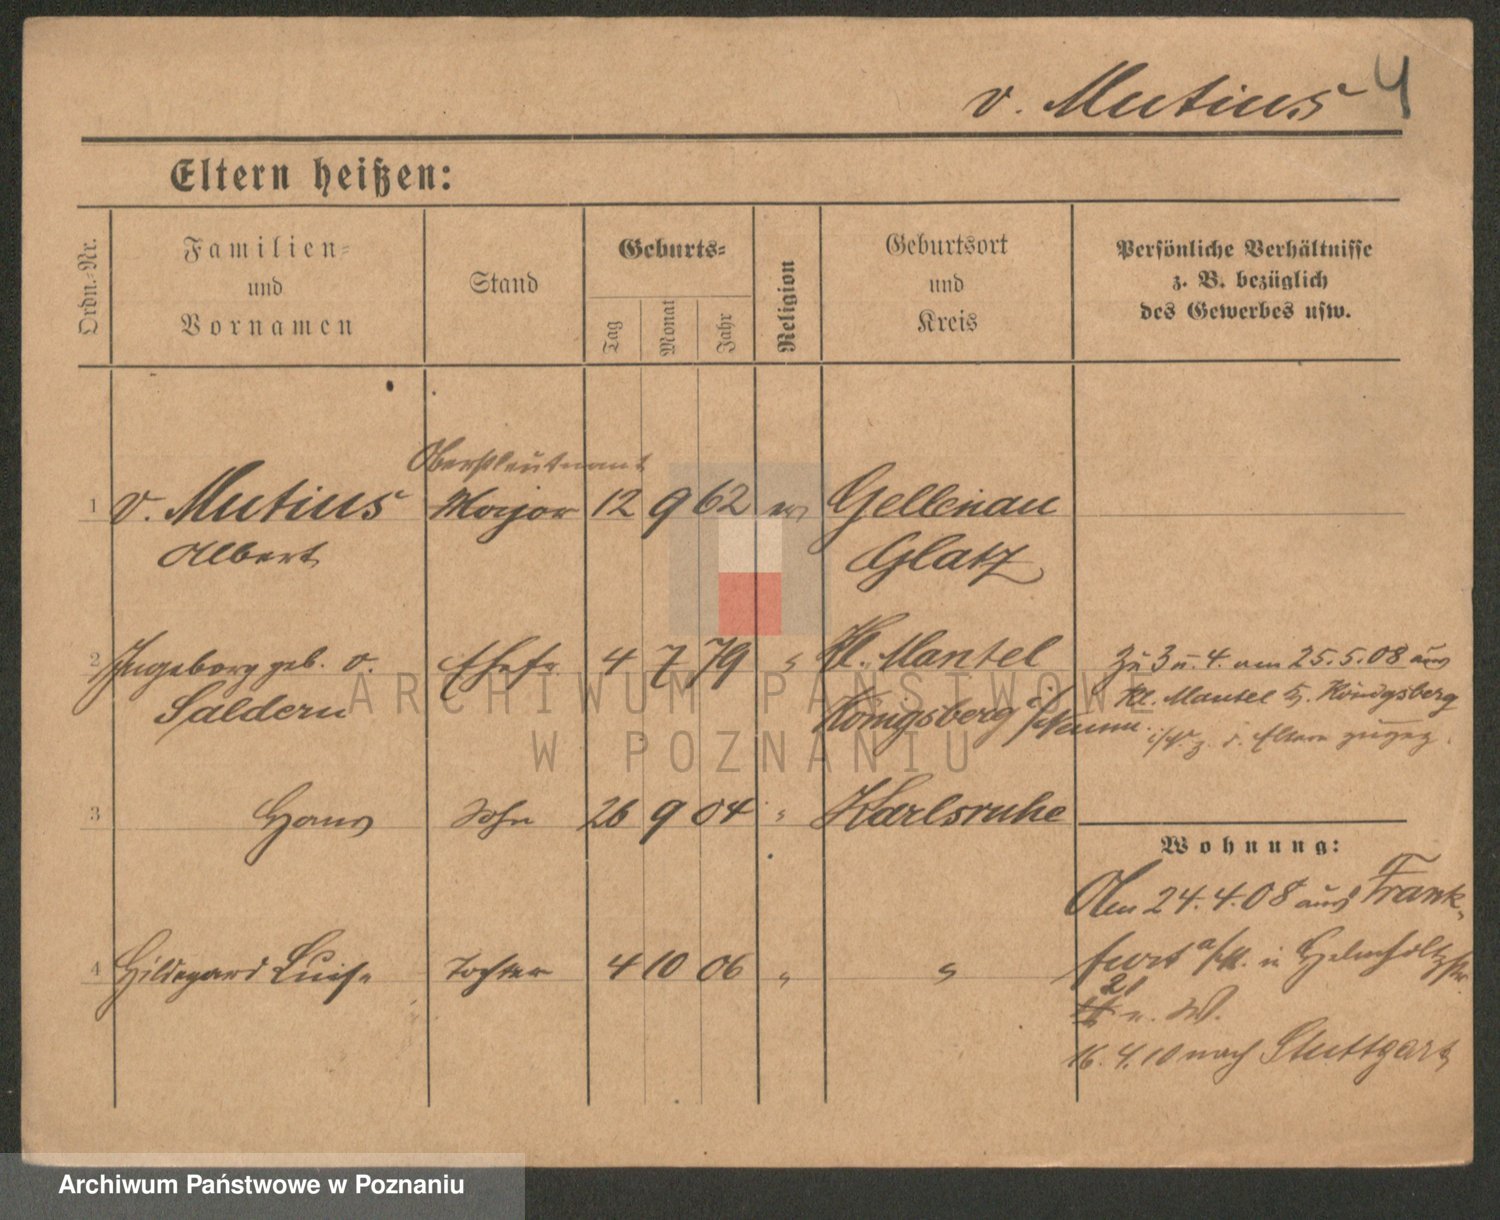 v. Mutius 4
Eltern heißen:
Ordn.-Nr.
Familien-
und
Vornamen
Stand
Geburts-
Tag
Monat
Jahr
Religion
Geburtsort
und
Kreis
Persönliche Verhältnisse
z. B. bezüglich
des Gewerbes usw.
Oberstleutnant
1 v. Mutius Major 12 9 62 ev Gellenau
Albert Glatz
2 Ingeborg geb. v. Ehefr. 4 7 79 " Kl. Mantel
Saldern Königsberg i/Neum.
Zu 3 u. 4. am 25.5.08 aus
Kl. Mantel b. Königsberg
i/N. z. d. Eltern zugez.
3 Hans Sohn 26 9 04 " Karlsruhe
4 Hildegard Luise Tochter 4 10 06 " "
Wohnung:
Am 24.4.08 aus Frank-
furt a/M. in Helmholtzstr.
21 n. W.
16.4.10 nach Stuttgart
ARCHIWUM PAŃSTWOWE
W POZNANIU
Archiwum Państwowe w Poznaniu